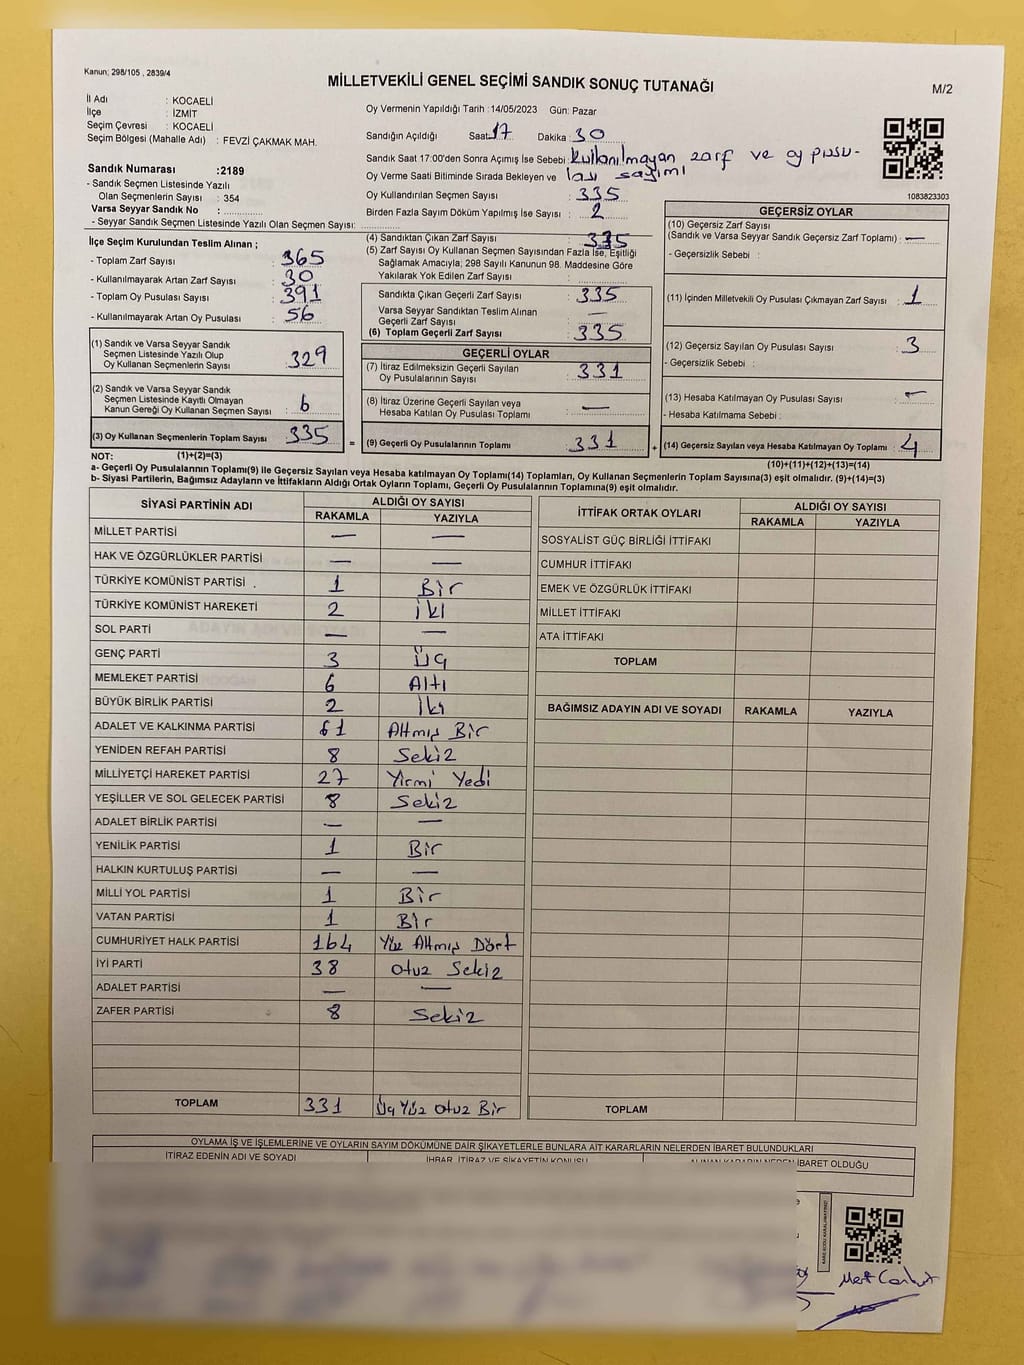 Kanun; 298/105 , 2839/4
MİLLETVEKİLİ GENEL SEÇİMİ SANDIK SONUÇ TUTANAĞI
M/2
İl Adı : KOCAELİ
İlçe : İZMİT
Seçim Çevresi : KOCAELİ
Seçim Bölgesi (Mahalle Adı) : FEVZİ ÇAKMAK MAH.
Sandık Numarası :2189
- Sandık Seçmen Listesinde Yazılı
Olan Seçmenlerin Sayısı : 354
Varsa Seyyar Sandık No :
- Seyyar Sandık Seçmen Listesinde Yazılı Olan Seçmen Sayısı:
Oy Vermenin Yapıldığı Tarih :14/05/2023 Gün: Pazar
Sandığın Açıldığı Saat 17 Dakika : 30
Sandık Saat 17:00'den Sonra Açımış İse Sebebi : kullanılmayan zarf ve oy pusu-
Oy Verme Saati Bitiminde Sırada Bekleyen ve lası sayımı
Oy Kullandırılan Seçmen Sayısı : 335
Birden Fazla Sayım Döküm Yapılmış İse Sayısı : 2
1083823303
İlçe Seçim Kurulundan Teslim Alınan ;
- Toplam Zarf Sayısı : 365
- Kullanılmayarak Artan Zarf Sayısı : 30
- Toplam Oy Pusulası Sayısı : 391
- Kullanılmayarak Artan Oy Pusulası : 56
(1) Sandık ve Varsa Seyyar Sandık
Seçmen Listesinde Yazılı Olup
Oy Kullanan Seçmenlerin Sayısı : 329
(2) Sandık ve Varsa Seyyar Sandık
Seçmen Listesinde Kayıtlı Olmayan
Kanun Gereği Oy Kullanan Seçmen Sayısı : 6
(3) Oy Kullanan Seçmenlerin Toplam Sayısı : 335
(4) Sandıktan Çıkan Zarf Sayısı : 335
(5) Zarf Sayısı Oy Kullanan Seçmen Sayısından Fazla İse, Eşitliği
Sağlamak Amacıyla; 298 Sayılı Kanunun 98. Maddesine Göre
Yakılarak Yok Edilen Zarf Sayısı :
Sandıkta Çıkan Geçerli Zarf Sayısı : 335
Varsa Seyyar Sandıktan Teslim Alınan
Geçerli Zarf Sayısı : —
(6) Toplam Geçerli Zarf Sayısı : 335
GEÇERLİ OYLAR
(7) İtiraz Edilmeksizin Geçerli Sayılan
Oy Pusulalarının Sayısı : 331
(8) İtiraz Üzerine Geçerli Sayılan veya
Hesaba Katılan Oy Pusulası Toplamı : —
= (9) Geçerli Oy Pusulalarının Toplamı : 331 +
GEÇERSİZ OYLAR
(10) Geçersiz Zarf Sayısı
(Sandık ve Varsa Seyyar Sandık Geçersiz Zarf Toplamı) : —
- Geçersizlik Sebebi :
(11) İçinden Milletvekili Oy Pusulası Çıkmayan Zarf Sayısı : 1
(12) Geçersiz Sayılan Oy Pusulası Sayısı : 3
- Geçersizlik Sebebi :
(13) Hesaba Katılmayan Oy Pusulası Sayısı : —
- Hesaba Katılmama Sebebi :
(14) Geçersiz Sayılan veya Hesaba Katılmayan Oy Toplamı : 4
NOT: (1)+(2)=(3) (10)+(11)+(12)+(13)=(14)
a- Geçerli Oy Pusulalarının Toplamı(9) ile Geçersiz Sayılan veya Hesaba katılmayan Oy Toplamı(14) Toplamları, Oy Kullanan Seçmenlerin Toplam Sayısına(3) eşit olmalıdır. (9)+(14)=(3)
b- Siyasi Partilerin, Bağımsız Adayların ve İttifakların Aldığı Ortak Oyların Toplamı, Geçerli Oy Pusulalarının Toplamına(9) eşit olmalıdır.
SİYASİ PARTİNİN ADI ALDIĞI OY SAYISI
RAKAMLA YAZIYLA
MİLLET PARTİSİ — —
HAK VE ÖZGÜRLÜKLER PARTİSİ — —
TÜRKİYE KOMÜNİST PARTİSİ 1 Bir
TÜRKİYE KOMÜNİST HAREKETİ 2 İki
SOL PARTİ — —
GENÇ PARTİ 3 Üç
MEMLEKET PARTİSİ 6 Altı
BÜYÜK BİRLİK PARTİSİ 2 İki
ADALET VE KALKINMA PARTİSİ 61 Altmış Bir
YENİDEN REFAH PARTİSİ 8 Sekiz
MİLLİYETÇİ HAREKET PARTİSİ 27 Yirmi Yedi
YEŞİLLER VE SOL GELECEK PARTİSİ 8 Sekiz
ADALET BİRLİK PARTİSİ — —
YENİLİK PARTİSİ 1 Bir
HALKIN KURTULUŞ PARTİSİ — —
MİLLİ YOL PARTİSİ 1 Bir
VATAN PARTİSİ 1 Bir
CUMHURİYET HALK PARTİSİ 164 Yüz Altmış Dört
İYİ PARTİ 38 Otuz Sekiz
ADALET PARTİSİ — —
ZAFER PARTİSİ 8 Sekiz
TOPLAM 331 Üç Yüz Otuz Bir
İTTİFAK ORTAK OYLARI ALDIĞI OY SAYISI
RAKAMLA YAZIYLA
SOSYALİST GÜÇ BİRLİĞİ İTTİFAKI
CUMHUR İTTİFAKI
EMEK VE ÖZGÜRLÜK İTTİFAKI
MİLLET İTTİFAKI
ATA İTTİFAKI
TOPLAM
BAĞIMSIZ ADAYIN ADI VE SOYADI RAKAMLA YAZIYLA
TOPLAM
OYLAMA İŞ VE İŞLEMLERİNE VE OYLARIN SAYIM DÖKÜMÜNE DAİR ŞİKAYETLERLE BUNLARA AİT KARARLARIN NELERDEN İBARET BULUNDUKLARI
İTİRAZ EDENİN ADI VE SOYADI İHBAR, İTİRAZ VE ŞİKAYETİN KONUSU ALINAN KARARIN NEDEN İBARET OLDUĞU